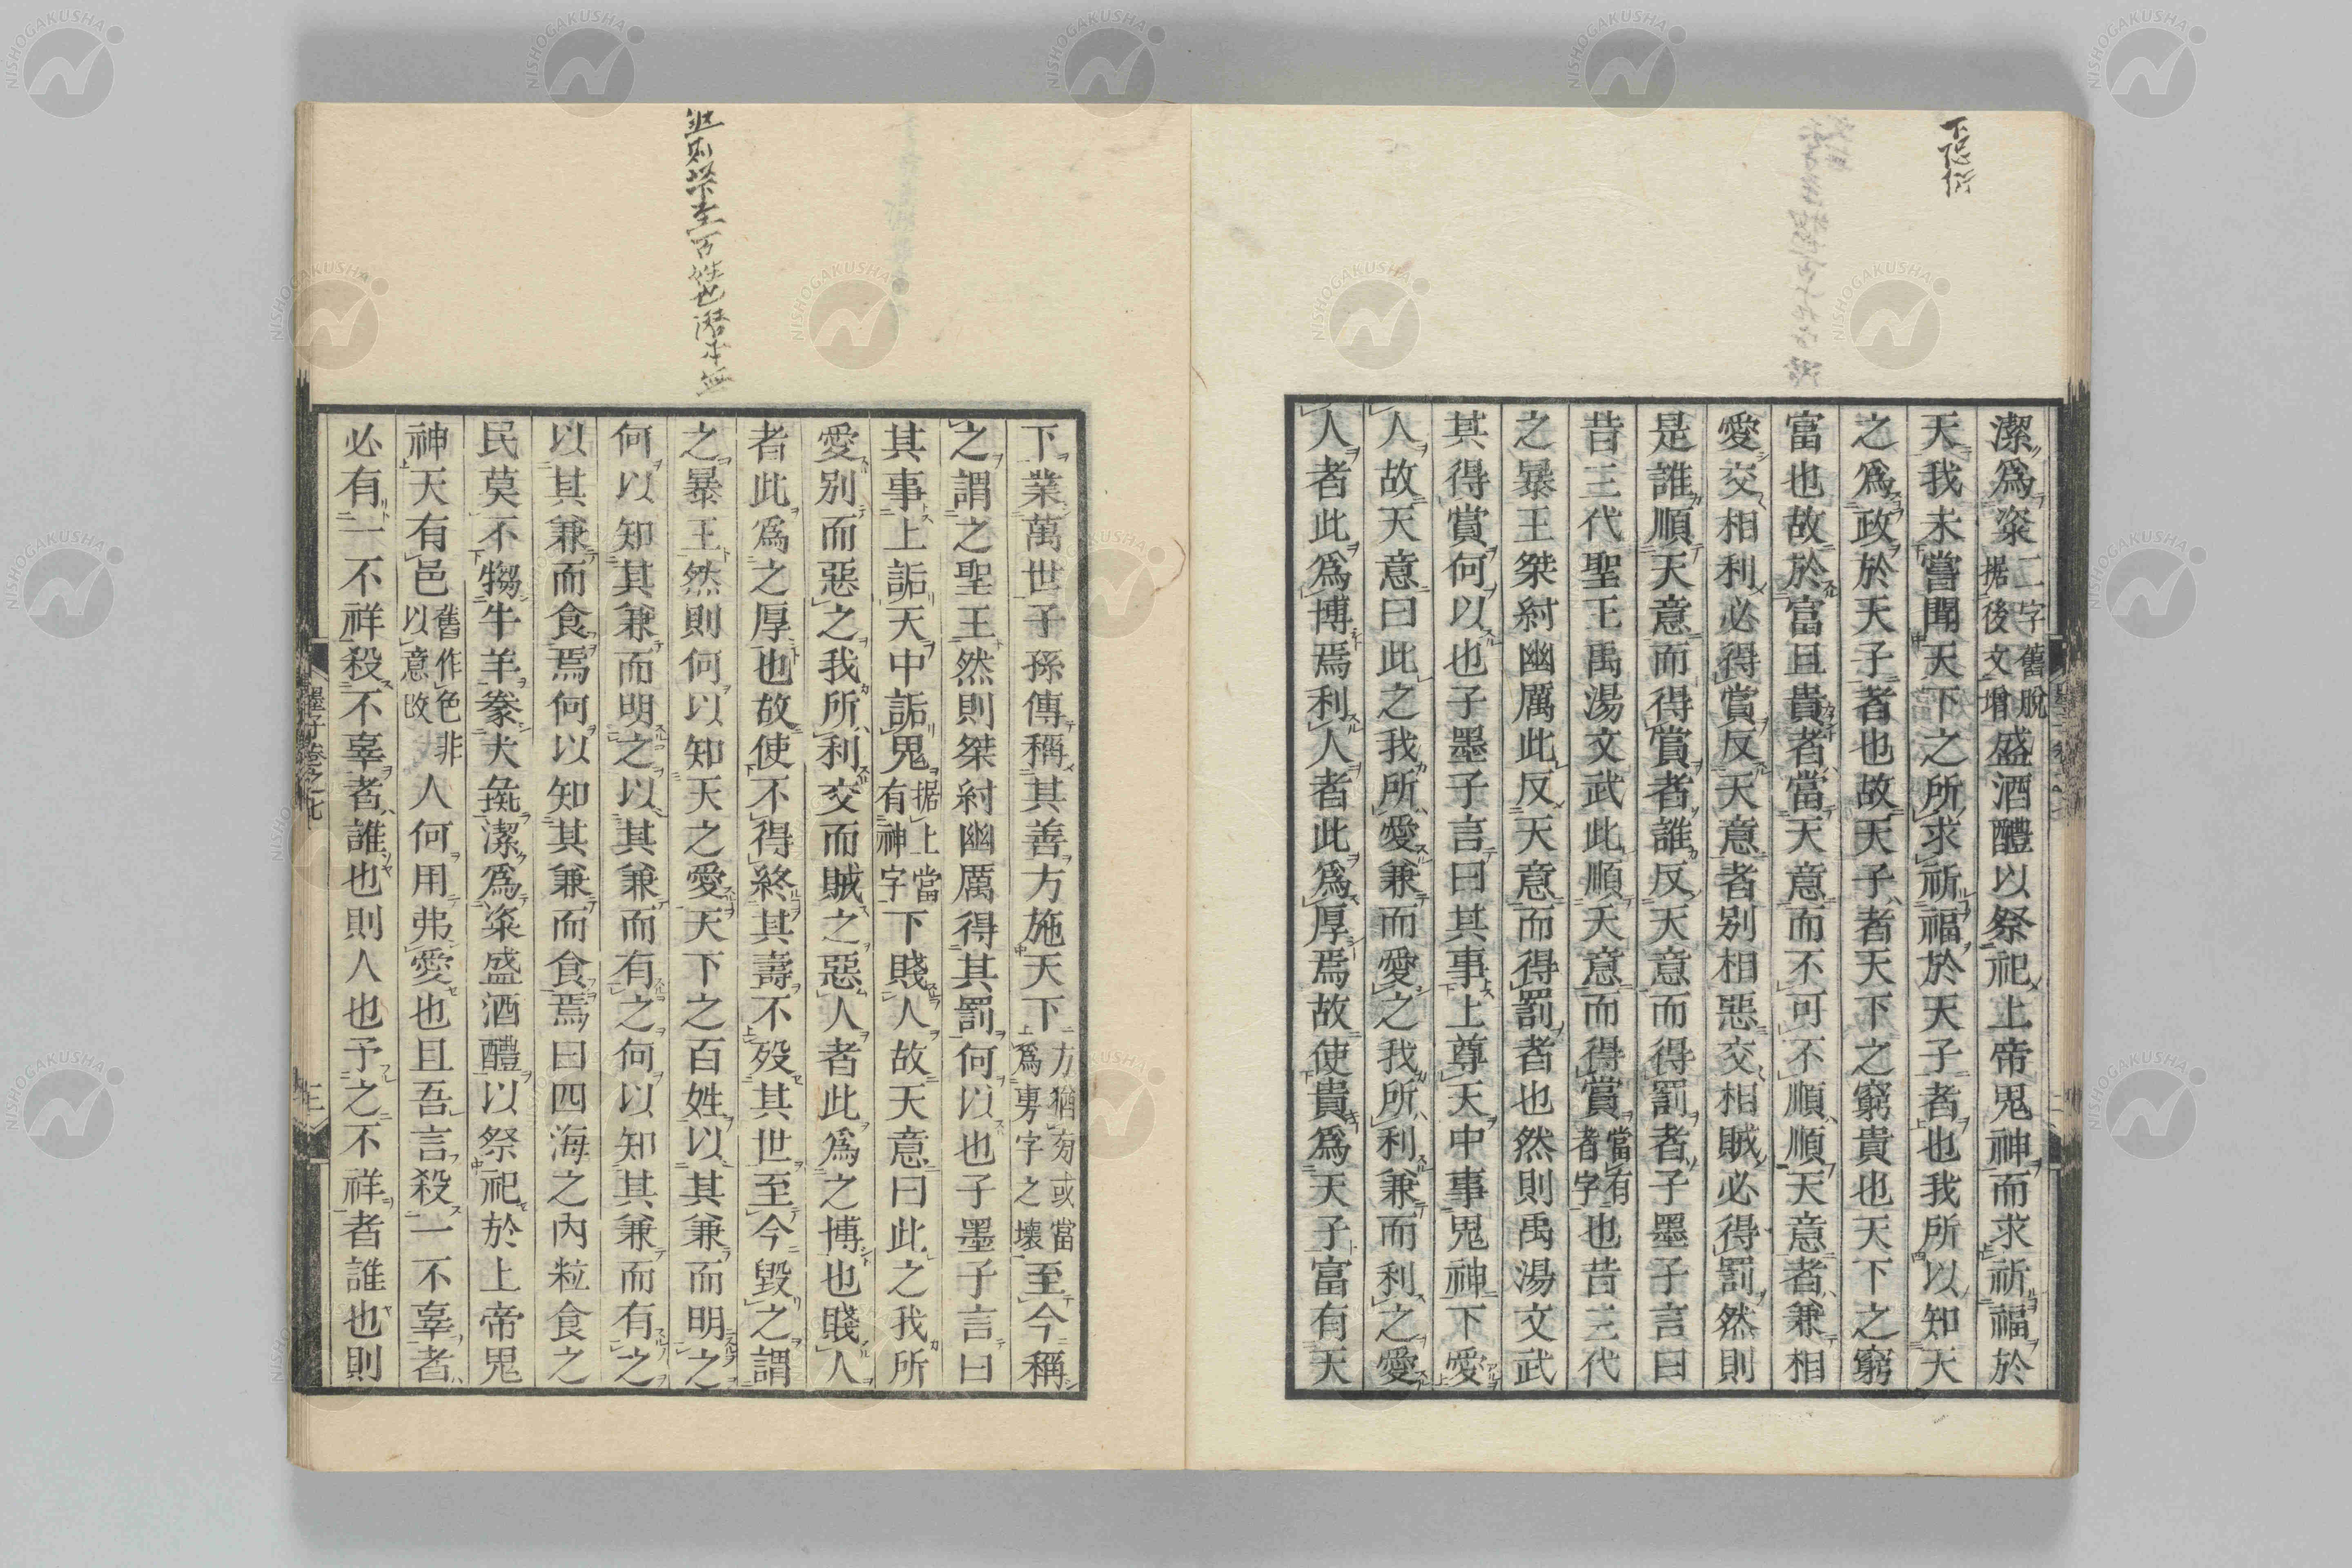 下
潔爲粢二字舊脫据後文增盛酒醴以祭祀上帝鬼神而求祈福於
天我未嘗聞天下之所求祈福於天子者也我所以知天
之爲政於天子者也故天子者天下之窮貴也天下之窮
富也故於富且貴者當天意而不可不順順天意者兼相
愛交相利必得賞反天意者別相惡交相賊必得罰然則
是誰順天意而得賞者誰反天意而得罰者子墨子言曰
昔三代聖王禹湯文武此順天意而得賞當有者字也昔三代
之暴王桀紂幽厲此反天意而得罰者也然則禹湯文武
其得賞何以也子墨子言曰其事上尊天中事鬼神下愛
人故天意曰此之我所愛兼而愛之我所利兼而利之愛
人者此爲博焉利人者此爲厚焉故使貴爲天子富有天
下業萬世子孫傳稱其善方施天下方猶㫄或當爲旉字之壞至今稱
之謂之聖王然則桀紂幽厲得其罰何以也子墨子言曰
其事上詬天中詬鬼据上當有神字下賤人故天意曰此之我所
愛別而惡之我所利交而賊之惡人者此爲之博也賤人
者此爲之厚也故使不得終其壽不歿其世至今毀之謂
之暴王然則何以知天之愛天下之百姓以其兼而明之
何以知其兼而明之以其兼而有之何以知其兼而有之
以其兼而食焉何以知其兼而食焉曰四海之內粒食之
民莫不犓牛羊豢犬彘潔爲粢盛酒醴以祭祀於上帝鬼
神天有邑舊作色非以意改人何用弗愛也且吾言殺一不辜者
必有一不祥殺不辜者誰也則人也予之不祥者誰也則
墨子卷之七
三